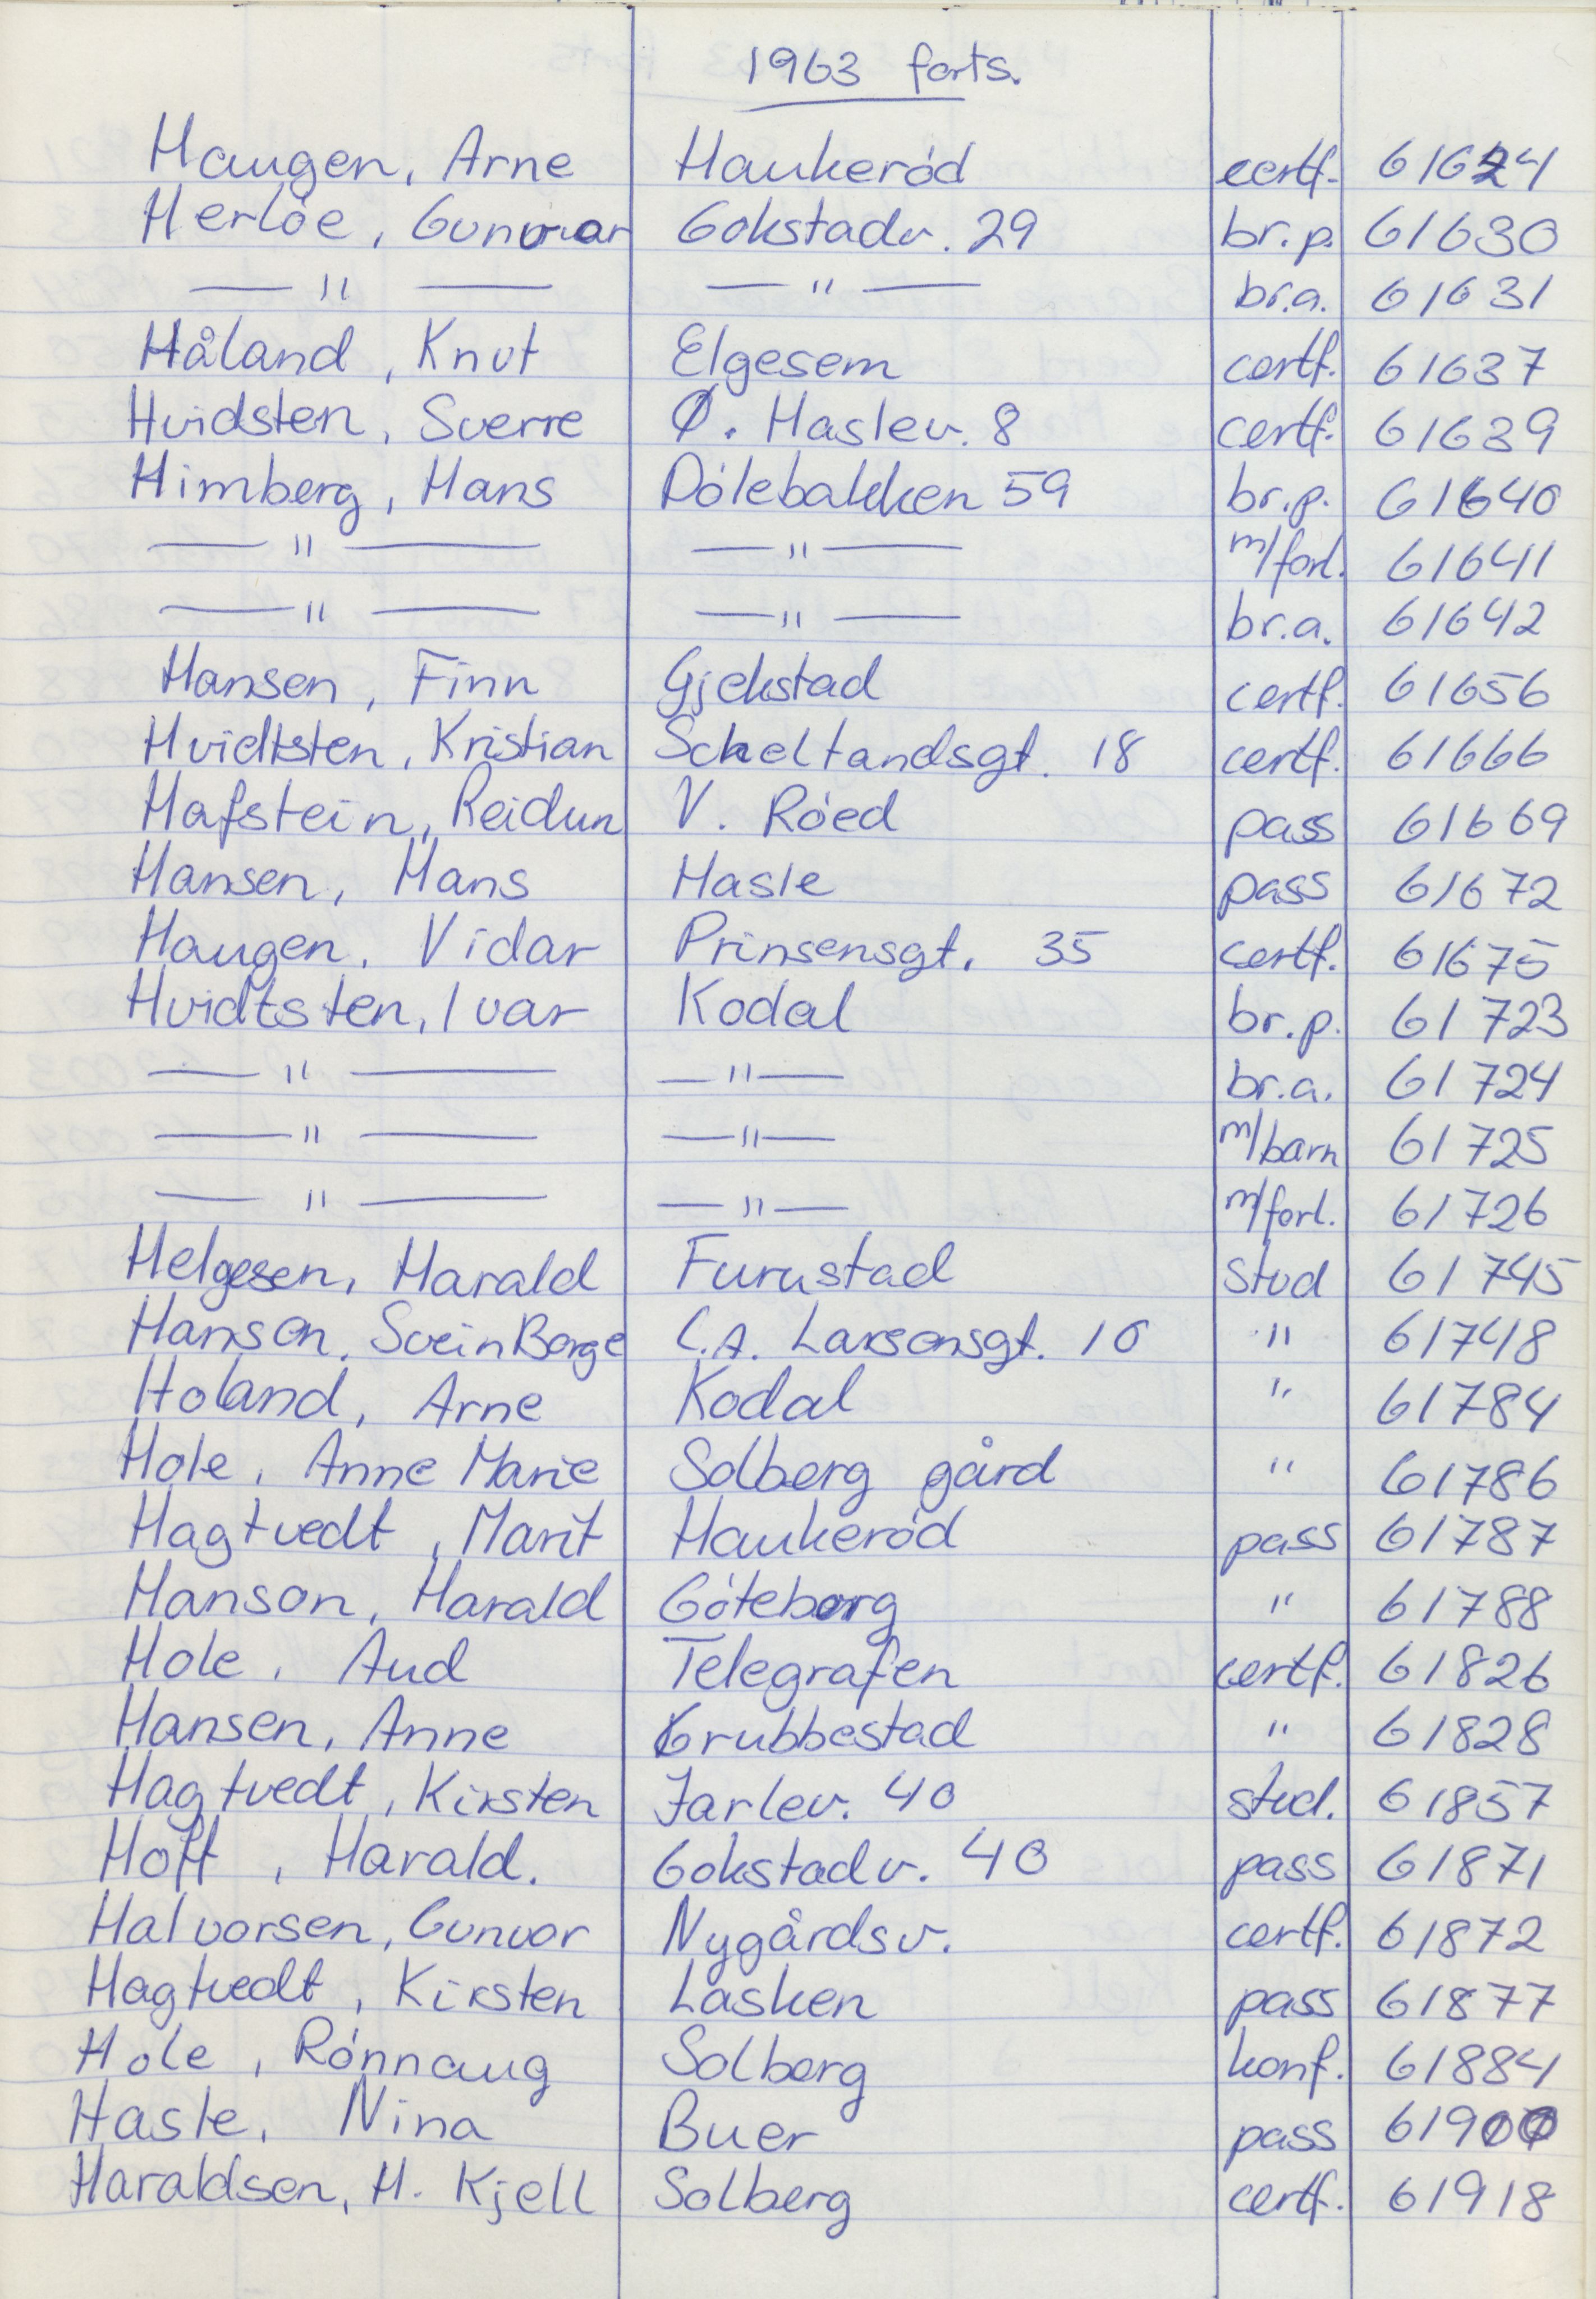 1963 forts.
Haugen, Arne Haukeród certf. 61624
Herlóe, Gunnar Gokstadv. 29 br.p. 61630
— " — — " — br.a. 61631
Håland, Knut Elgesem certf. 61637
Hvidsten, Sverre Ø. Haslev. 8 certf. 61639
Himberg, Hans Dólebakken 59 br.p. 61640
— " — — " — m/forl. 61641
— " — — " — br.a. 61642
Hansen, Finn Gjekstad certf. 61656
Hvidtsten, Kristian Scheltandsgt. 18 certf. 61666
Hafstein, Reidun V. Róed pass 61669
Hansen, Hans Hasle pass 61672
Haugen, Vidar Prinsensgt. 35 certf. 61675
Hvidtsten, Ivar Kodal br.p. 61723
— " — — " — br.a. 61724
— " — — " — m/barn 61725
— " — — " — m/forl. 61726
Helgesen, Harald Furustad stud 61745
Hanson, Svein Borge C.A. Larsensgt. 10 " 61748
Holand, Arne Kodal " 61784
Hole, Anne Marie Solberg gård " 61786
Hagtvedt, Marit Haukeród pass 61787
Hanson, Harald Góteborg " 61788
Hole, Aud Telegrafen certf. 61826
Hansen, Anne Grubbestad " 61828
Hagtvedt, Kirsten Jarlev. 40 stud. 61857
Hoff, Harald. Gokstadv. 40 pass 61871
Halvorsen, Gunvor Nygårdsv. certf. 61872
Hagtvedt, Kirsten Lasken pass 61877
Hole, Rónnaug Solberg konf. 61884
Hasle, Nina Buer pass 61900
Haraldsen, H. Kjell Solberg certf. 61918